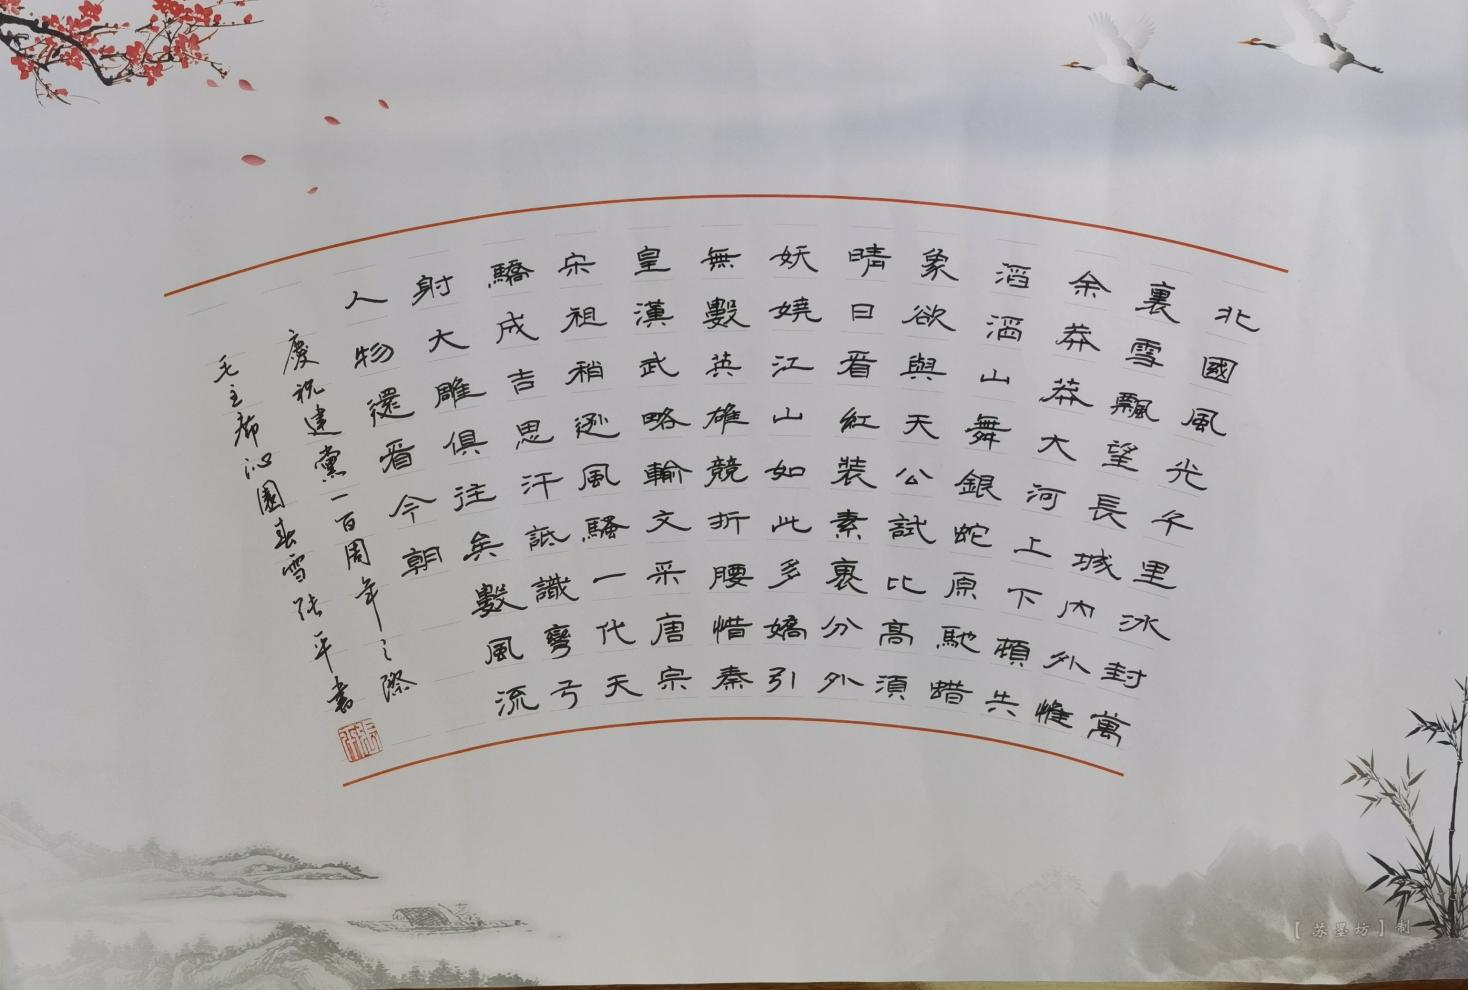 北國風光千里冰封萬
裏雪飄望長城內外惟
余莽莽大河上下頓失
滔滔山舞銀蛇原馳蜡
象欲與天公試比高須
晴日看紅裝素裹分外
妖嬈江山如此多嬌引
無數英雄競折腰惜秦
皇漢武略輸文采唐宗
宋祖稍遜風騷一代天
驕成吉思汗詆識彎弓
射大雕俱往矣數風流
人物還看今朝
慶祝建黨一百周年之際
毛主席沁園春雪張平書
【苏墨坊】制